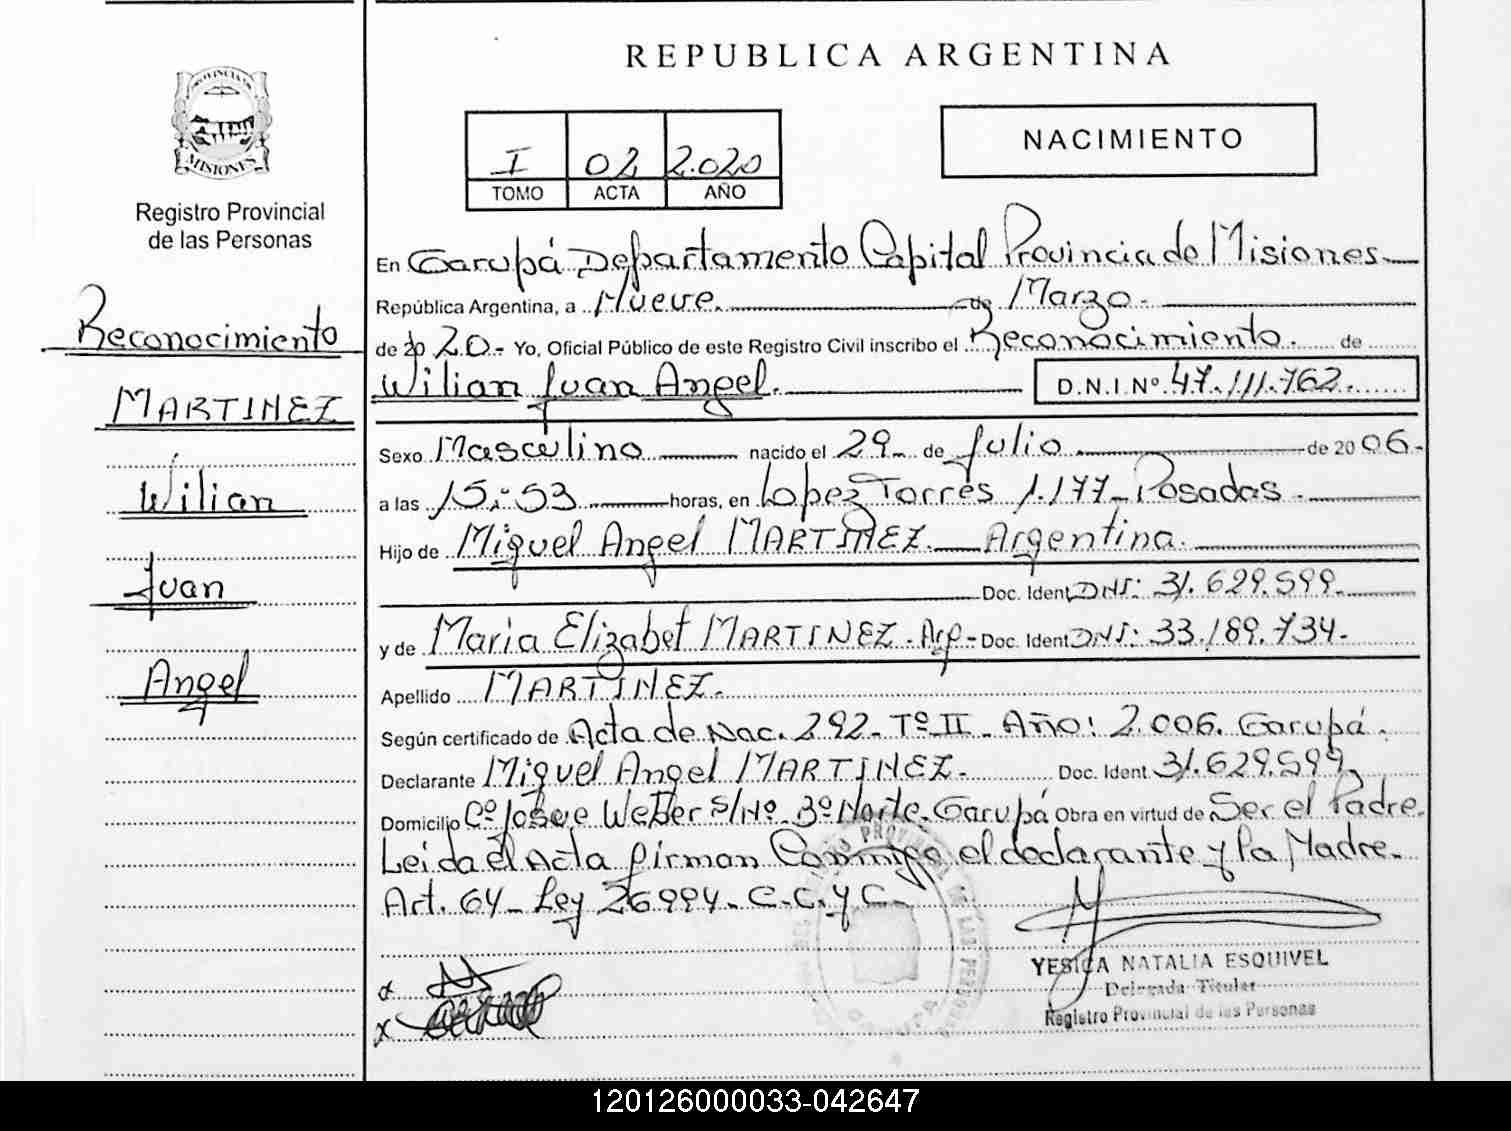 REPUBLICA ARGENTINA
PROVINCIA DE
MISIONES
Registro Provincial
de las Personas
I 02 2.020
TOMO ACTA AÑO
NACIMIENTO
Reconocimiento
MARTINEZ
Wilian
Juan
Angel
En Garupá Departamento Capital Provincia de Misiones
República Argentina, a Nueve. de Marzo.
de 2020.- Yo, Oficial Público de este Registro Civil inscribo el Reconocimiento. de
Wilian Juan Angel. D.N.I. Nº 47.111.762.
Sexo Masculino nacido el 29 de Julio de 2006.
a las 15:53 horas, en Lopez Torres 1.177 - Posadas.
Hijo de Miguel Angel MARTINEZ. Argentina.
Doc. Ident DNI: 31.629.599.
y de Maria Elizabet MARTINEZ. Arg- Doc. Ident DNI: 33.189.734.
Apellido MARTINEZ.
Según certificado de Acta de Nac. 292. Tº II. Año: 2.006. Garupá.
Declarante Miguel Angel MARTINEZ. Doc. Ident 31.629.599
Domicilio Cº Josere Weber s/Nº 3º Norte. Garupá Obra en virtud de Ser el Padre.
Leida el Acta firman Conmigo el declarante y la Madre.
Art. 64 - Ley 26.994. C.C. y C.
YESICA NATALIA ESQUIVEL
Delegada Titular
Registro Provincial de las Personas
120126000033-042647